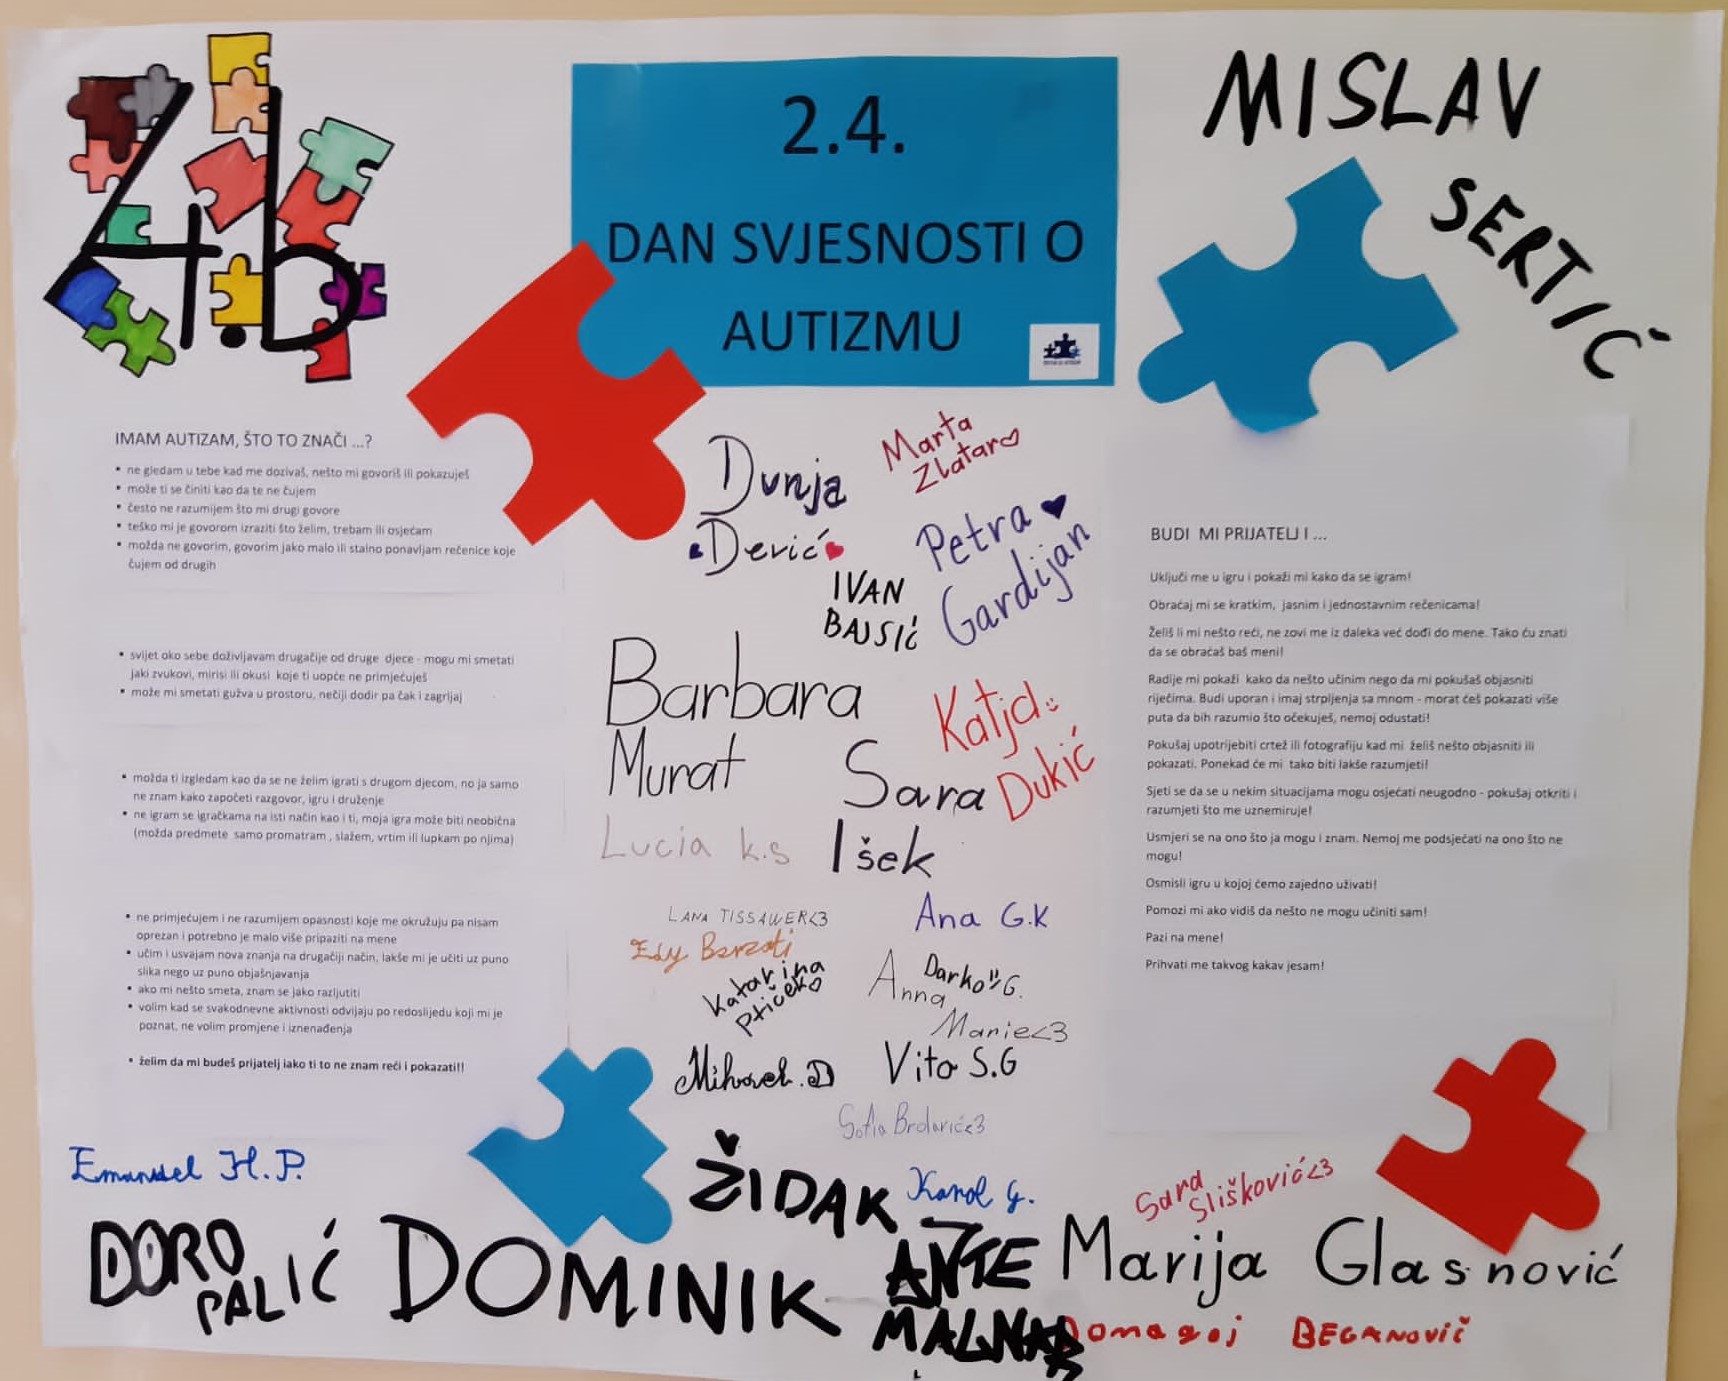 4.b
2.4.
DAN SVJESNOSTI O
AUTIZMU
MISLAV
SERTIĆ
IMAM AUTIZAM, ŠTO TO ZNAČI ...?
• ne gledam u tebe kad me dozivaš, nešto mi govoriš ili pokazuješ
• može ti se činiti kao da te ne čujem
• često ne razumijem što mi drugi govore
• teško mi je govorom izraziti što želim, trebam ili osjećam
• možda ne govorim, govorim jako malo ili stalno ponavljam rečenice koje
čujem od drugih
• svijet oko sebe doživljavam drugačije od druge djece - mogu mi smetati
jaki zvukovi, mirisi ili okusi koje ti uopće ne primjećuješ
• može mi smetati gužva u prostoru, nečiji dodir pa čak i zagrljaj
• možda ti izgledam kao da se ne želim igrati s drugom djecom, no ja samo
ne znam kako započeti razgovor, igru i druženje
• ne igram se igračkama na isti način kao i ti, moja igra može biti neobična
(možda predmete samo promatram , slažem, vrtim ili lupkam po njima)
• ne primjećujem i ne razumijem opasnosti koje me okružuju pa nisam
oprezan i potrebno je malo više pripaziti na mene
• učim i usvajam nova znanja na drugačiji način, lakše mi je učiti uz puno
slika nego uz puno objašnjavanja
• ako mi nešto smeta, znam se jako razljutiti
• volim kad se svakodnevne aktivnosti odvijaju po redoslijedu koji mi je
poznat, ne volim promjene i iznenađenja
• želim da mi budeš prijatelj iako ti to ne znam reći i pokazati!!
Dunja
Dević
Marta
Zlatar
Petra
Gardijan
IVAN
BAJSIĆ
Barbara
Murat
Katja
Dukić
Sara
Išek
Lucia k.s
LANA TISSAWER<3
Ana G.K
Edy
Katarina
Ptiček
Darko G.
Anna
Marie<3
Mihovel.D
Vito S.G
Sofia Brdarić<3
BUDI MI PRIJATELJ I ...
Uključi me u igru i pokaži mi kako da se igram!
Obraćaj mi se kratkim, jasnim i jednostavnim rečenicama!
Želiš li mi nešto reći, ne zovi me iz daleka već dođi do mene. Tako ću znati
da se obraćaš baš meni!
Radije mi pokaži kako da nešto učinim nego da mi pokušaš objasniti
riječima. Budi uporan i imaj strpljenja sa mnom - morat ćeš pokazati više
puta da bih razumio što očekuješ, nemoj odustati!
Pokušaj upotrijebiti crtež ili fotografiju kad mi želiš nešto objasniti ili
pokazati. Ponekad će mi tako biti lakše razumjeti!
Sjeti se da se u nekim situacijama mogu osjećati neugodno - pokušaj otkriti i
razumjeti što me uznemiruje!
Usmjeri se na ono što ja mogu i znam. Nemoj me podsjećati na ono što ne
mogu!
Osmisli igru u kojoj ćemo zajedno uživati!
Pomozi mi ako vidiš da nešto ne mogu učiniti sam!
Pazi na mene!
Prihvati me takvog kakav jesam!
Emanuel H.P.
DORO
PALIĆ
ŽIDAK
DOMINIK
Karol G.
ANTE
MALNAR
Sara
Slišković<3
Marija Glasnović
Domagoj BEGANOVIĆ